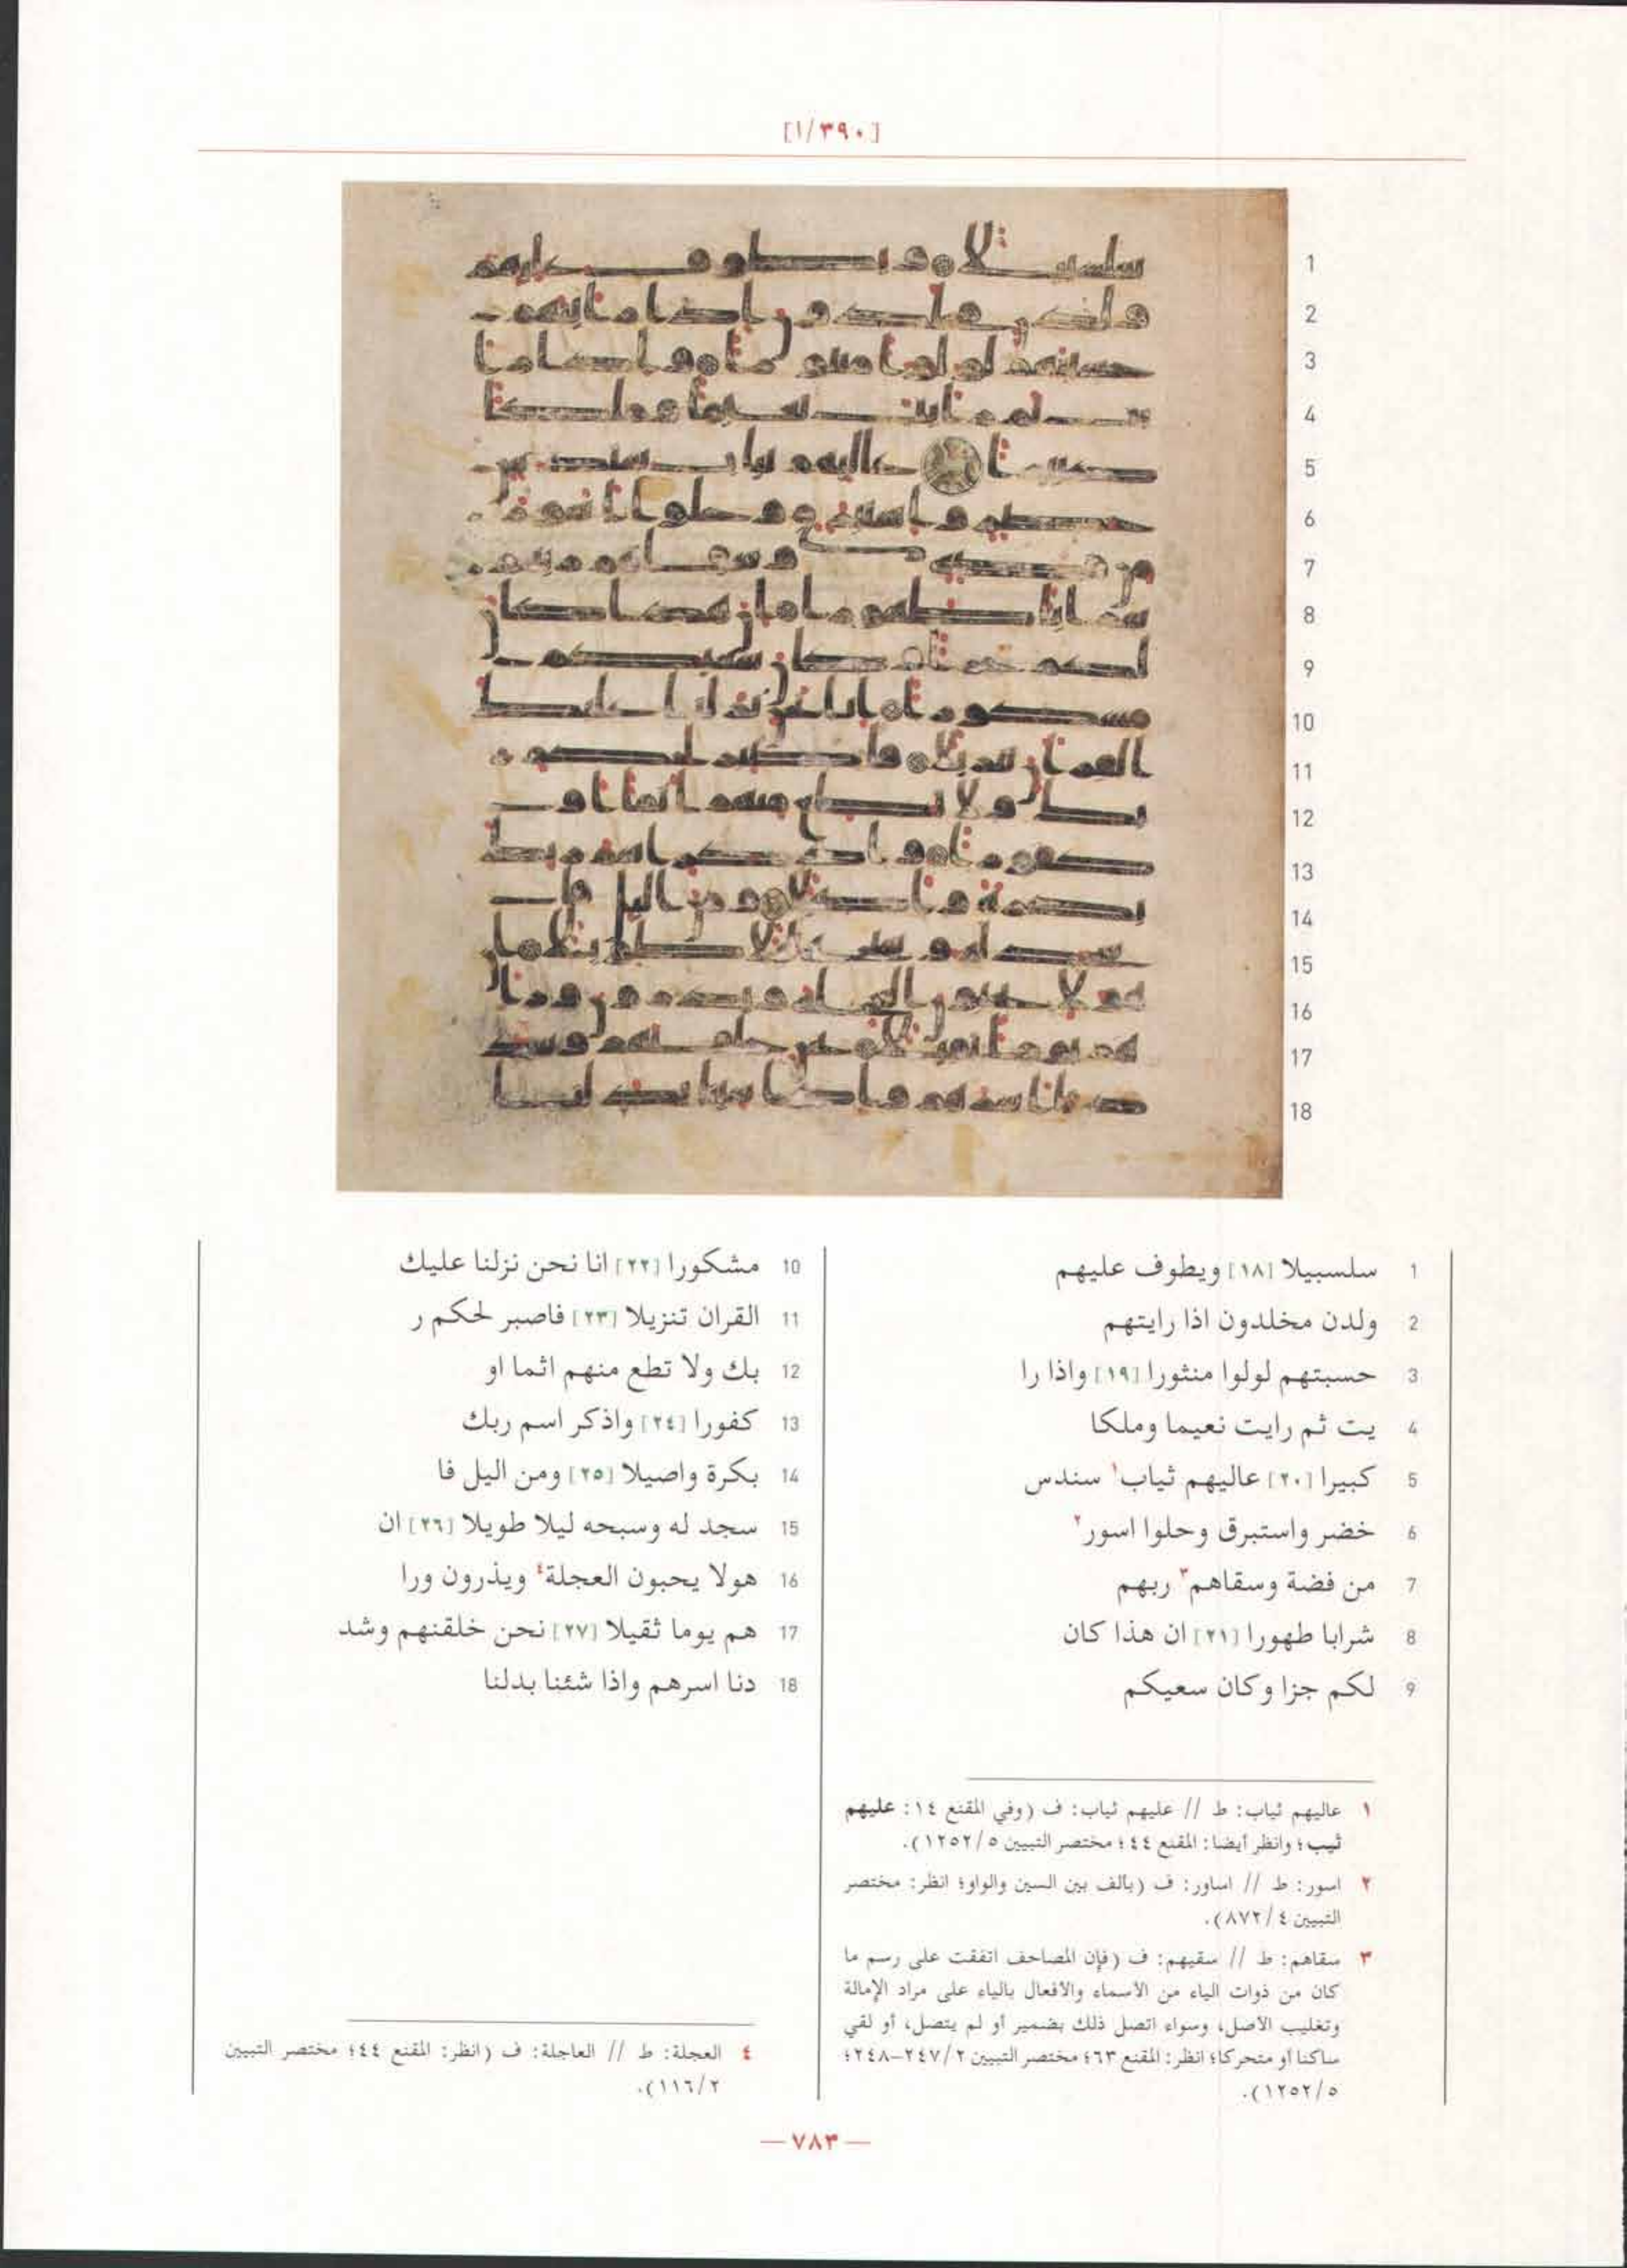 [١/٣٩٠]
1
2
3
4
5
6
7
8
9
10
11
12
13
14
15
16
17
18
1 سلسبيلا [١٨] ويطوف عليهم
2 ولدن مخلدون اذا رايتهم
3 حسبتهم لولوا منثورا [١٩] واذا را
4 يت ثم رايت نعيما وملكا
5 كبيرا [٢٠] عاليهم ثياب١ سندس
6 خضر واستبرق وحلوا اسور٢
7 من فضة وسقاهم٣ ربهم
8 شرابا طهورا [٢١] ان هذا كان
9 لكم جزا وكان سعيكم
10 مشكورا [٢٢] انا نحن نزلنا عليك
11 القران تنزيلا [٢٣] فاصبر لحكم ر
12 بك ولا تطع منهم اثما او
13 كفورا [٢٤] واذكر اسم ربك
14 بكرة واصيلا [٢٥] ومن اليل فا
15 سجد له وسبحه ليلا طويلا [٢٦] ان
16 هولا يحبون العجلة٤ ويذرون ورا
17 هم يوما ثقيلا [٢٧] نحن خلقنهم وشد
18 دنا اسرهم واذا شئنا بدلنا
١ عاليهم ثياب: ط // عليهم ثياب: ف (وفي المقنع ١٤: عليهم
ثيب؛ وانظر أيضا: المقنع ٤٤؛ مختصر التبيين ١٢٥٢/٥).
٢ اسور: ط // اساور: ف (بالف بين السين والواو؛ انظر: مختصر
التبيين ٨٧٢/٤).
٣ سقاهم: ط // سقيهم: ف (فإن المصاحف اتفقت على رسم ما
كان من ذوات الياء من الأسماء والأفعال بالياء على مراد الإمالة
وتغليب الأصل، وسواء اتصل ذلك بضمير أو لم يتصل، أو لقي
ساكنا أو متحركا؛ انظر: المقنع ٦٣؛ مختصر التبيين ٢٤٧/٢-٢٤٨؛
١٢٥٢/٥).
٤ العجلة: ط // العاجلة: ف (انظر: المقنع ٤٤؛ مختصر التبيين
١١٦/٢).
— ٧٨٣ —